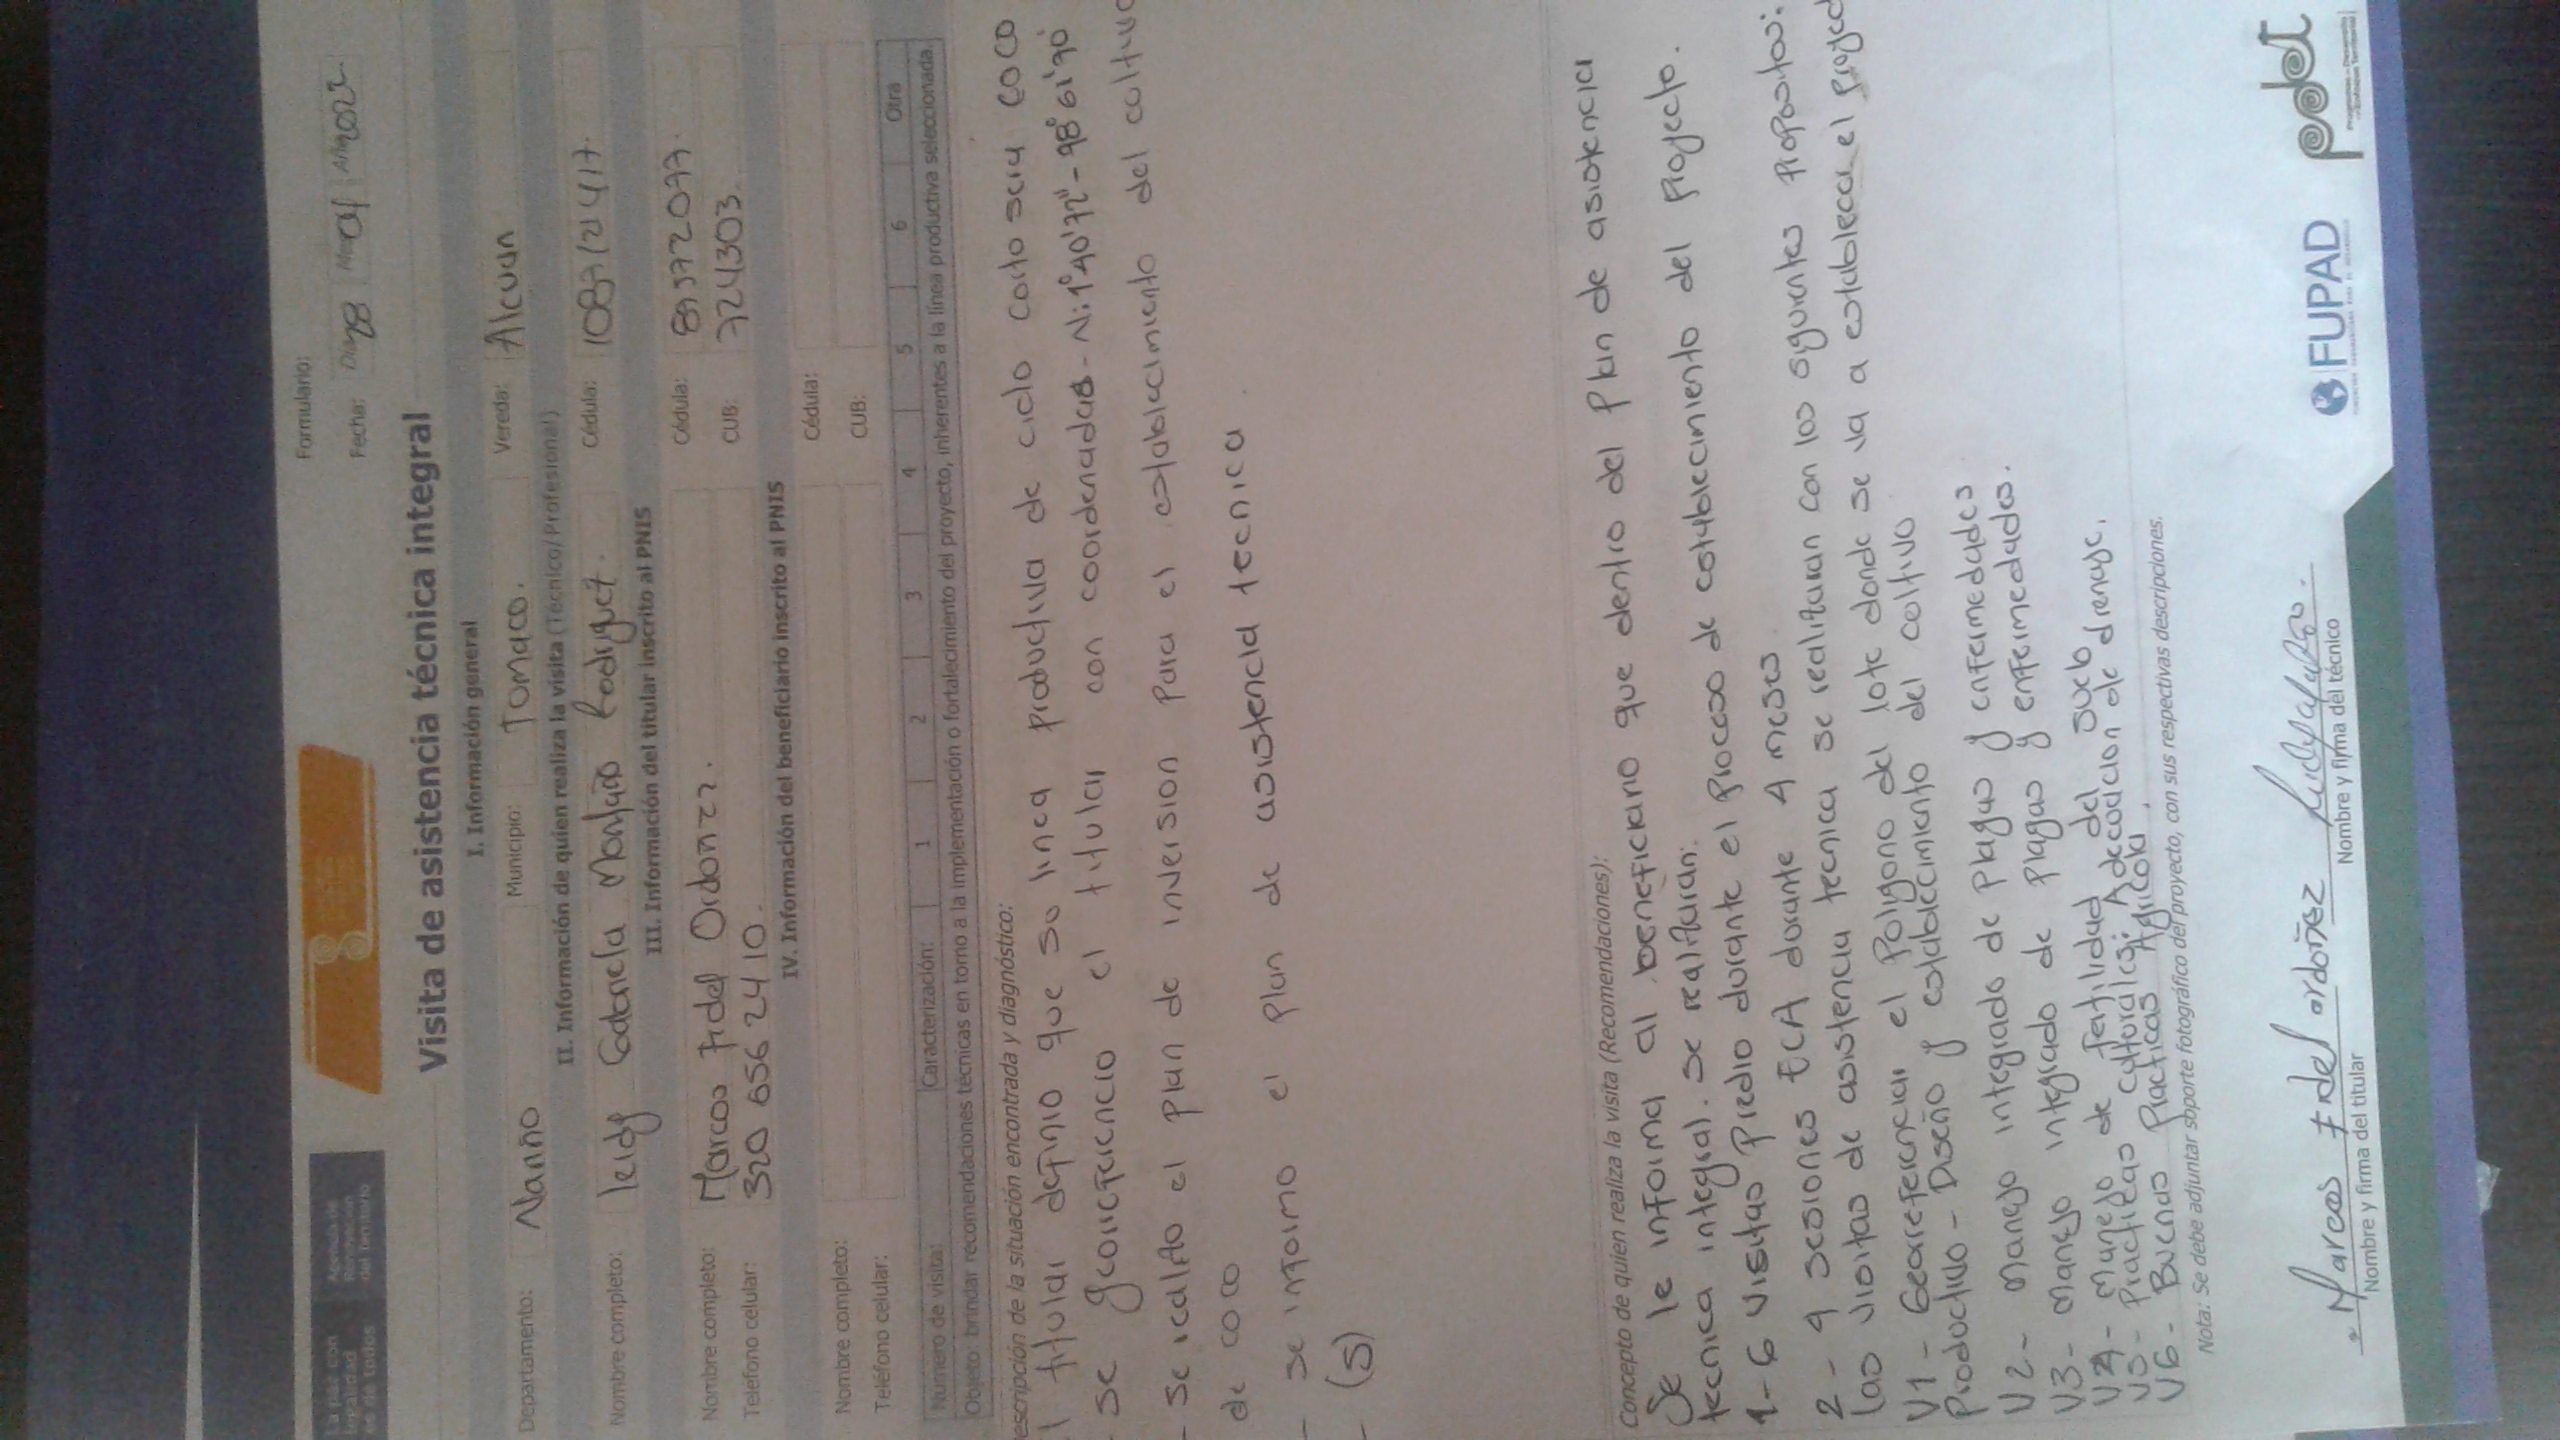 La paz con
legalidad
es de todos
Agencia de
Renovación
del Territorio
Formulario:
Fecha: Día 28 Mes 01 Año 2022.
Visita de asistencia técnica integral
I. Información general
Departamento: Nariño Municipio: Tumaco. Vereda: Alcuan
II. Información de quien realiza la visita (Técnico/Profesional)
Nombre completo: leidy Gabriela Montaño Rodriguez. Cédula: 1087121417.
III. Información del titular inscrito al PNIS
Nombre completo: Marcos Fidel Ordonez. Cédula:
Teléfono celular: 320 656 24 10. CUB: 724303.
IV. Información del beneficiario inscrito al PNIS
Nombre completo: Cédula:
Teléfono celular: CUB:
Número de visita: Caracterización: 1 2 3 4 5 6 Otra
Objeto: brindar recomendaciones técnicas en torno a la implementación o fortalecimiento del proyecto, inherentes a la línea productiva seleccionada.
escripción de la situación encontrada y diagnóstico:
l titular definio que su linea productiva de ciclo corto sera coco
- se georreferencio el titular con coordenadas - N: 1°40'72" - 98°61'90
- se realizo el plan de inversion para el establecimiento del cultivo
de coco
- se informo el plan de asistencia tecnica.
- (S)
Concepto de quien realiza la visita (Recomendaciones):
Se le informa al beneficiario que dentro del plan de asistencia
tecnica integral. se realizaran:
1- 6 visitas predio durante el proceso de establecimiento del proyecto.
2 - 4 sesiones ECA durante 4 meses.
las visitas de asistencia tecnica se realizaran con los siguientes propositos:
V1 - Georreferenciar el poligono del lote donde se va a establecer el proyect
productivo - Diseño y establecimiento del cultivo
V2 - manejo integrado de plagas y enfermedades
V3 - manejo integrado de plagas y enfermedades.
V4 - manejo de fertilidad del suelo
V5 - practicas culturales: Adecuacion de drenaje.
V6 - Buenas practicas Agricola.
Nota: Se debe adjuntar soporte fotográfico del proyecto, con sus respectivas descripciones.
Marcos Fidel ordoñez
Nombre y firma del titular
Nombre y firma del técnico
FUPAD
pdet